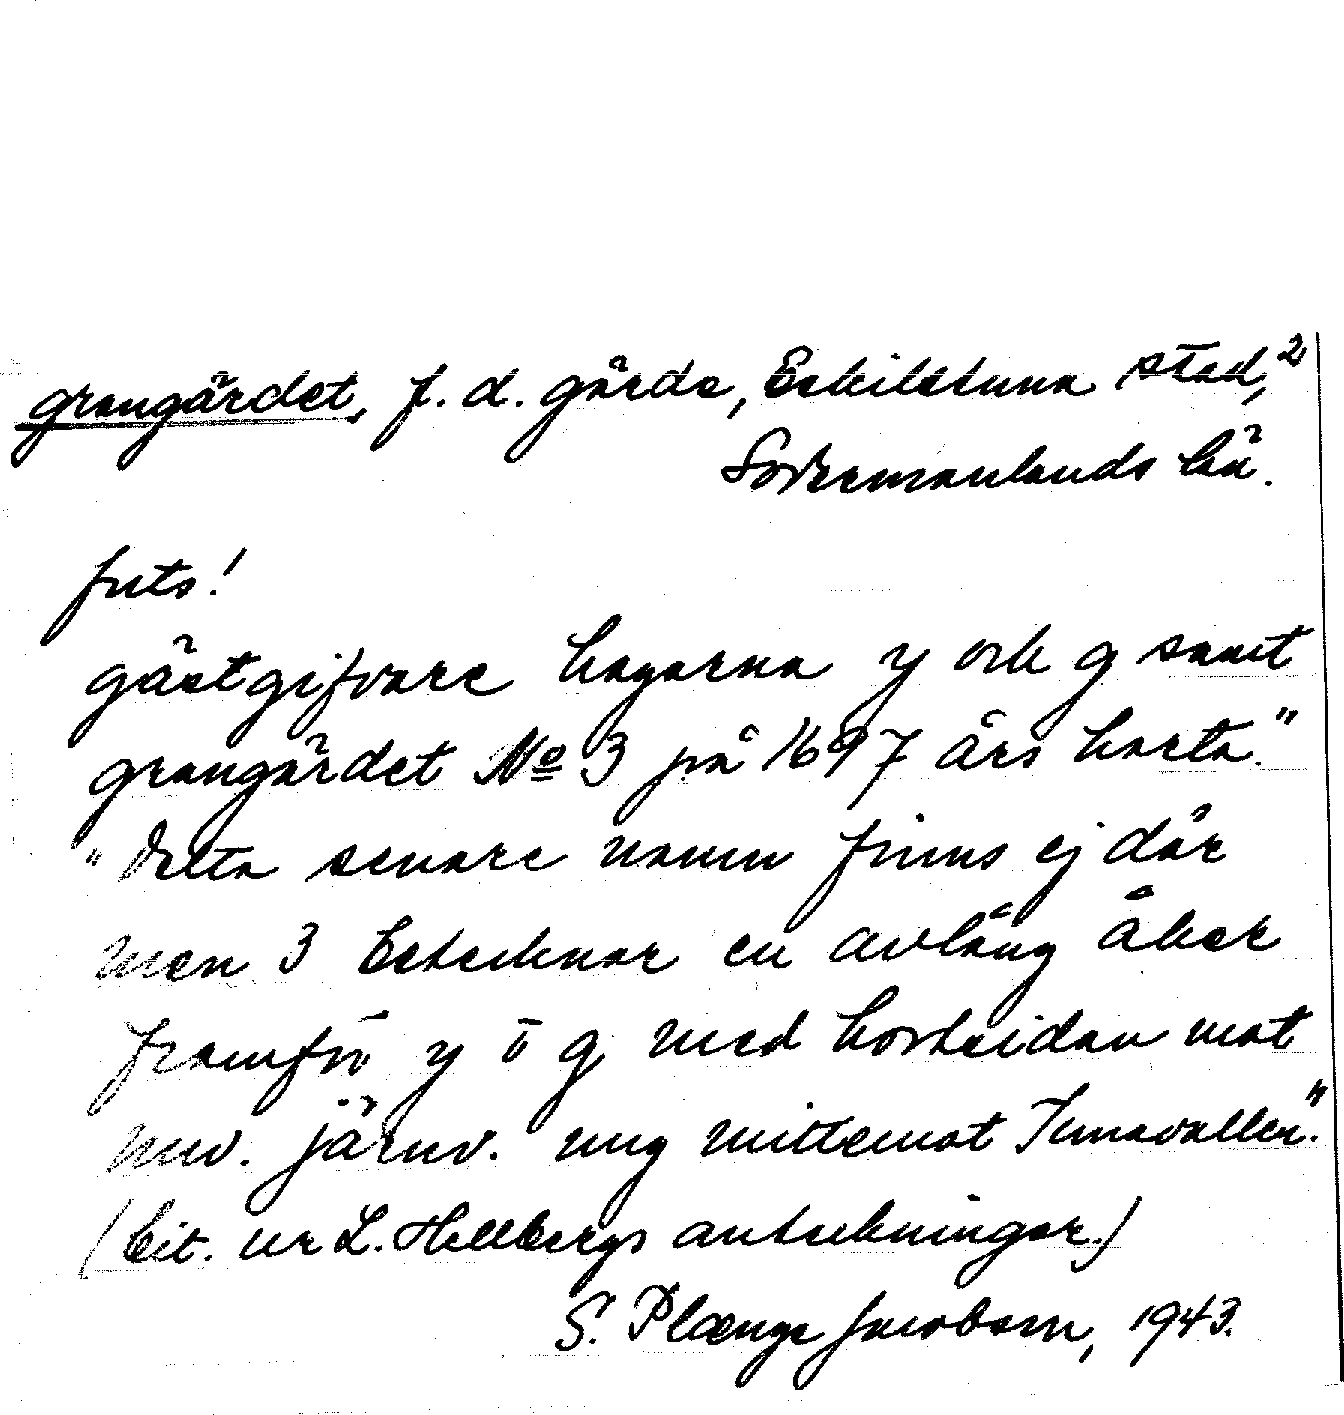 grangärdet, f. d. gärde, Eskilstuna stad,²
Södermanlands län.
forts!
gästgifvare hagarna y och g samt
grangärdet No 3 på 1697 års karta."
"Detta senare namn finns ej där
men 3 betecknar en avlång åker
framför y o g med kortsidan mot
nuv. järnv. ung mittemot Tunavallen."
(Cit. ur L. Hellbergs anteckningar.)
S. Plænge Jacobson, 1943.